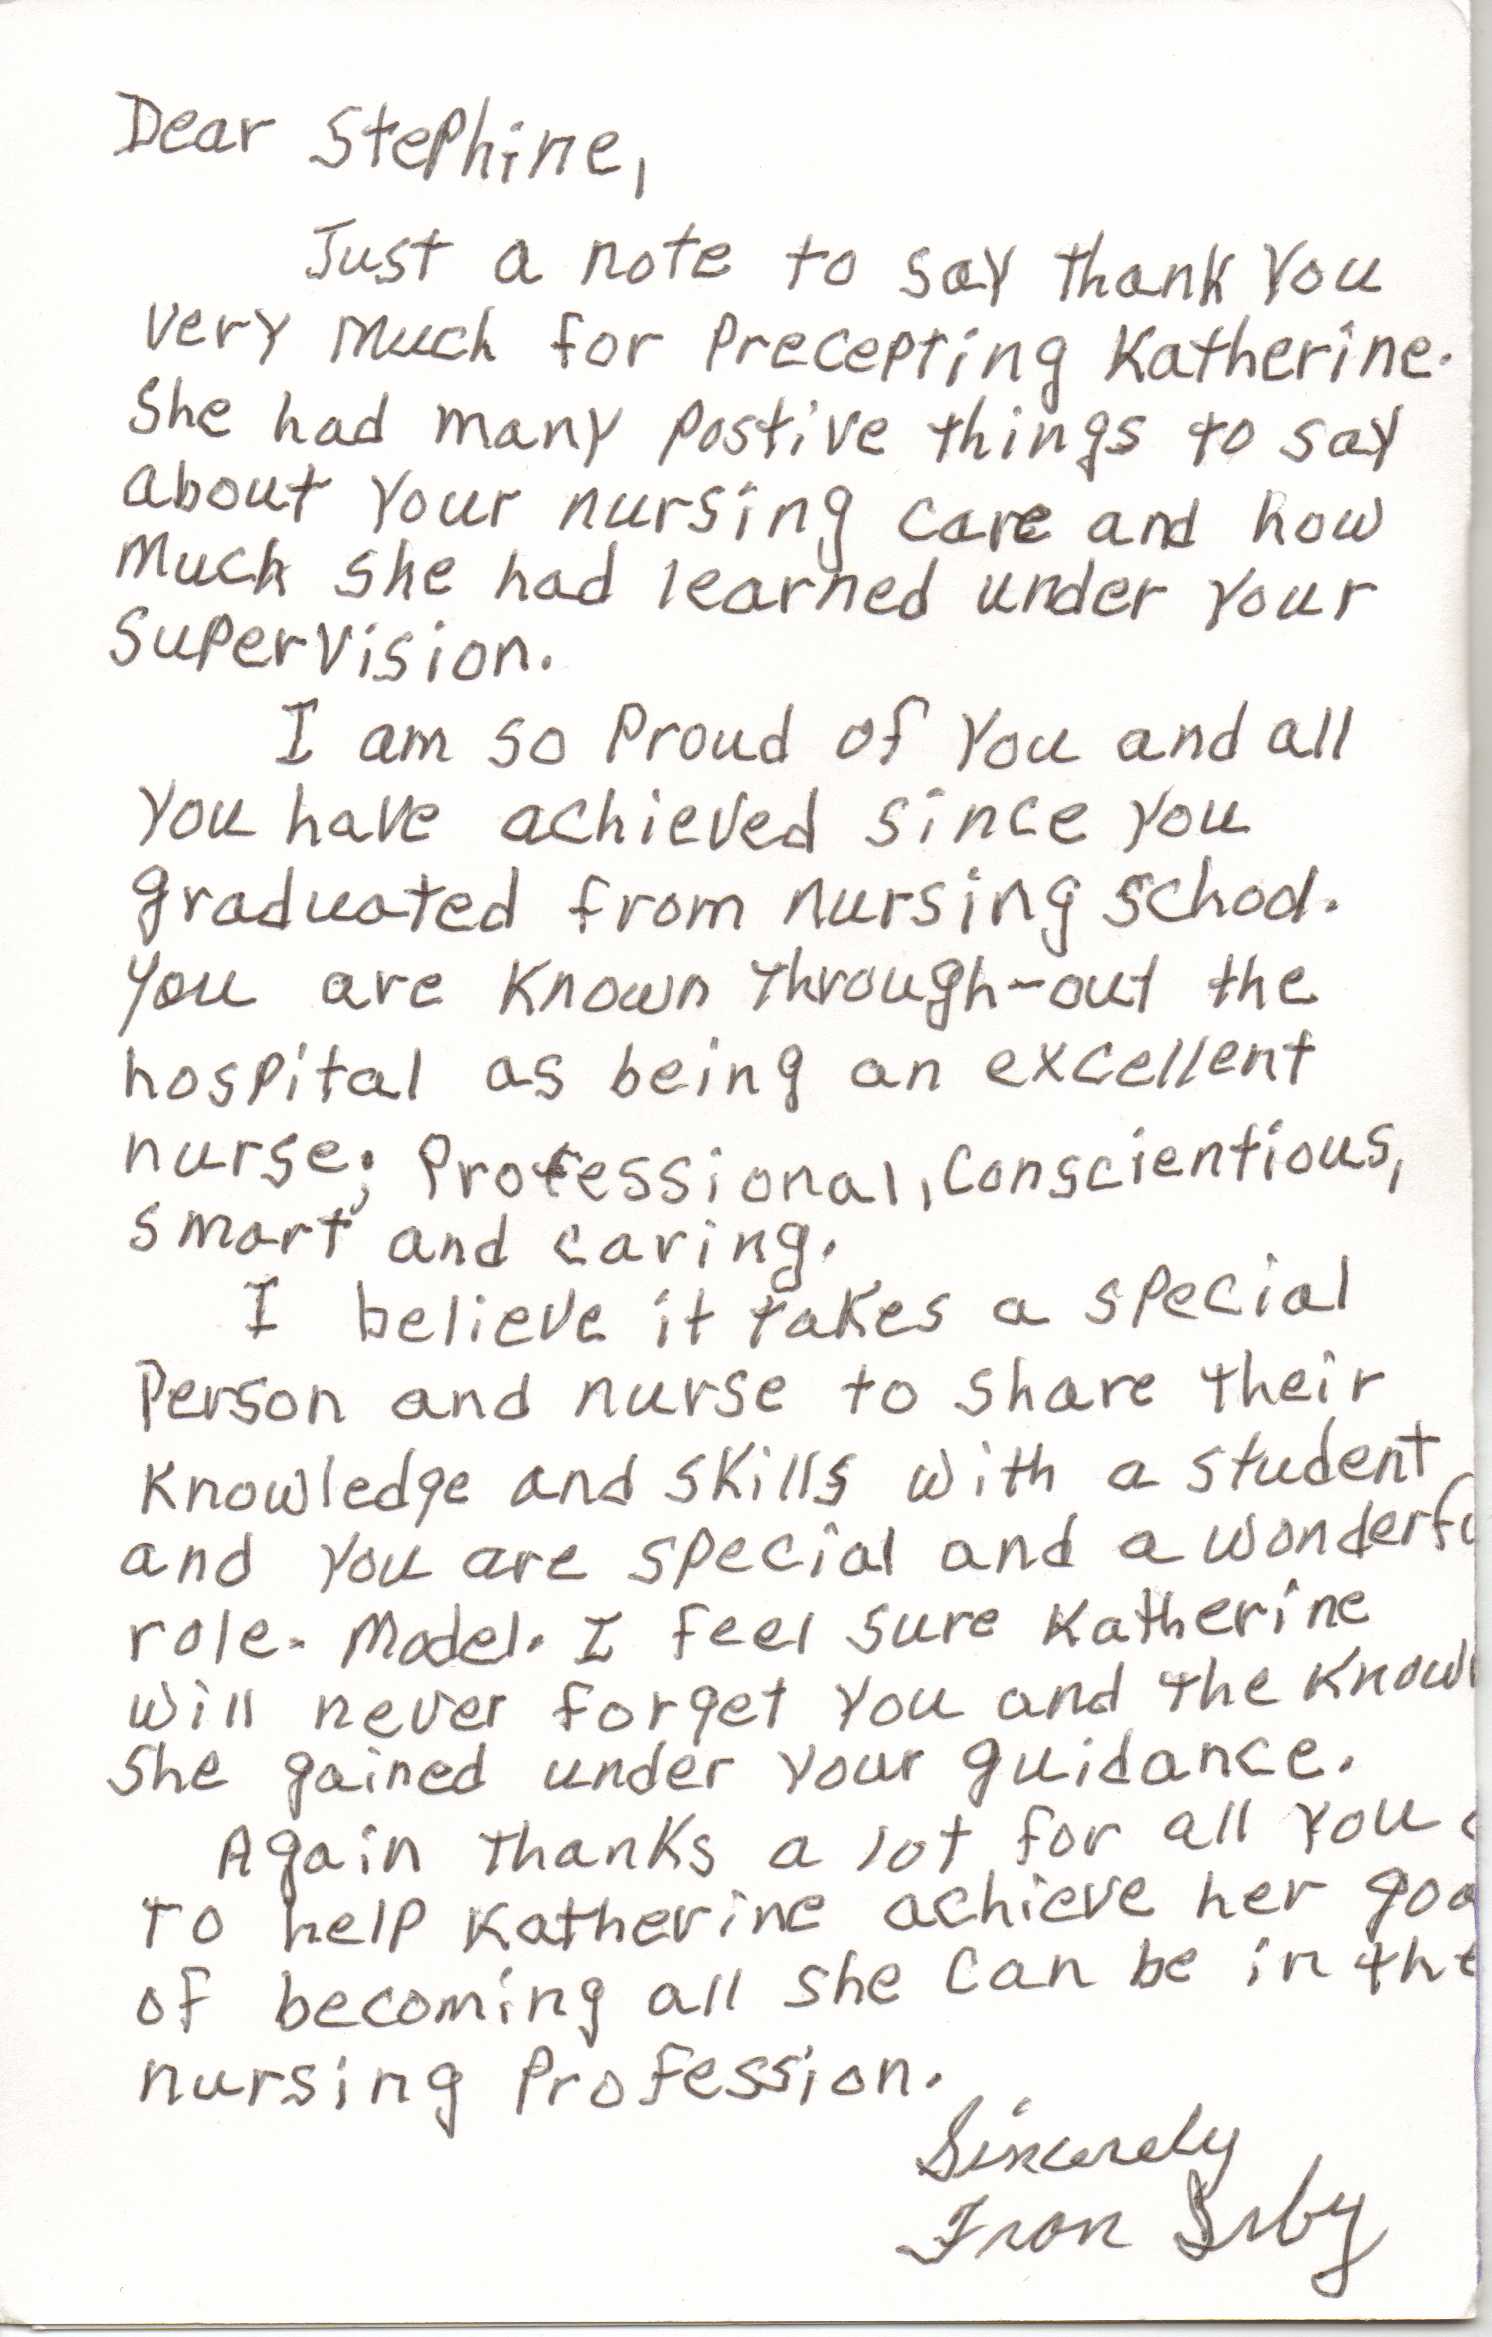 Dear Stephine,
Just a note to say thank you
very much for precepting Katherine.
She had many postive things to say
about your nursing care and how
much she had learned under your
supervision.
I am so proud of you and all
you have achieved since you
graduated from nursing school.
You are known through-out the
hospital as being an excellent
nurse; professional, conscientious,
smart and caring.
I believe it takes a special
person and nurse to share their
knowledge and skills with a student
and you are special and a wonderfu
role-model. I feel sure Katherine
will never forget you and the knowl
she gained under your guidance.
Again thanks a lot for all you
to help Katherine achieve her goa
of becoming all she can be in the
nursing profession.
Sincerely
Fran Irby